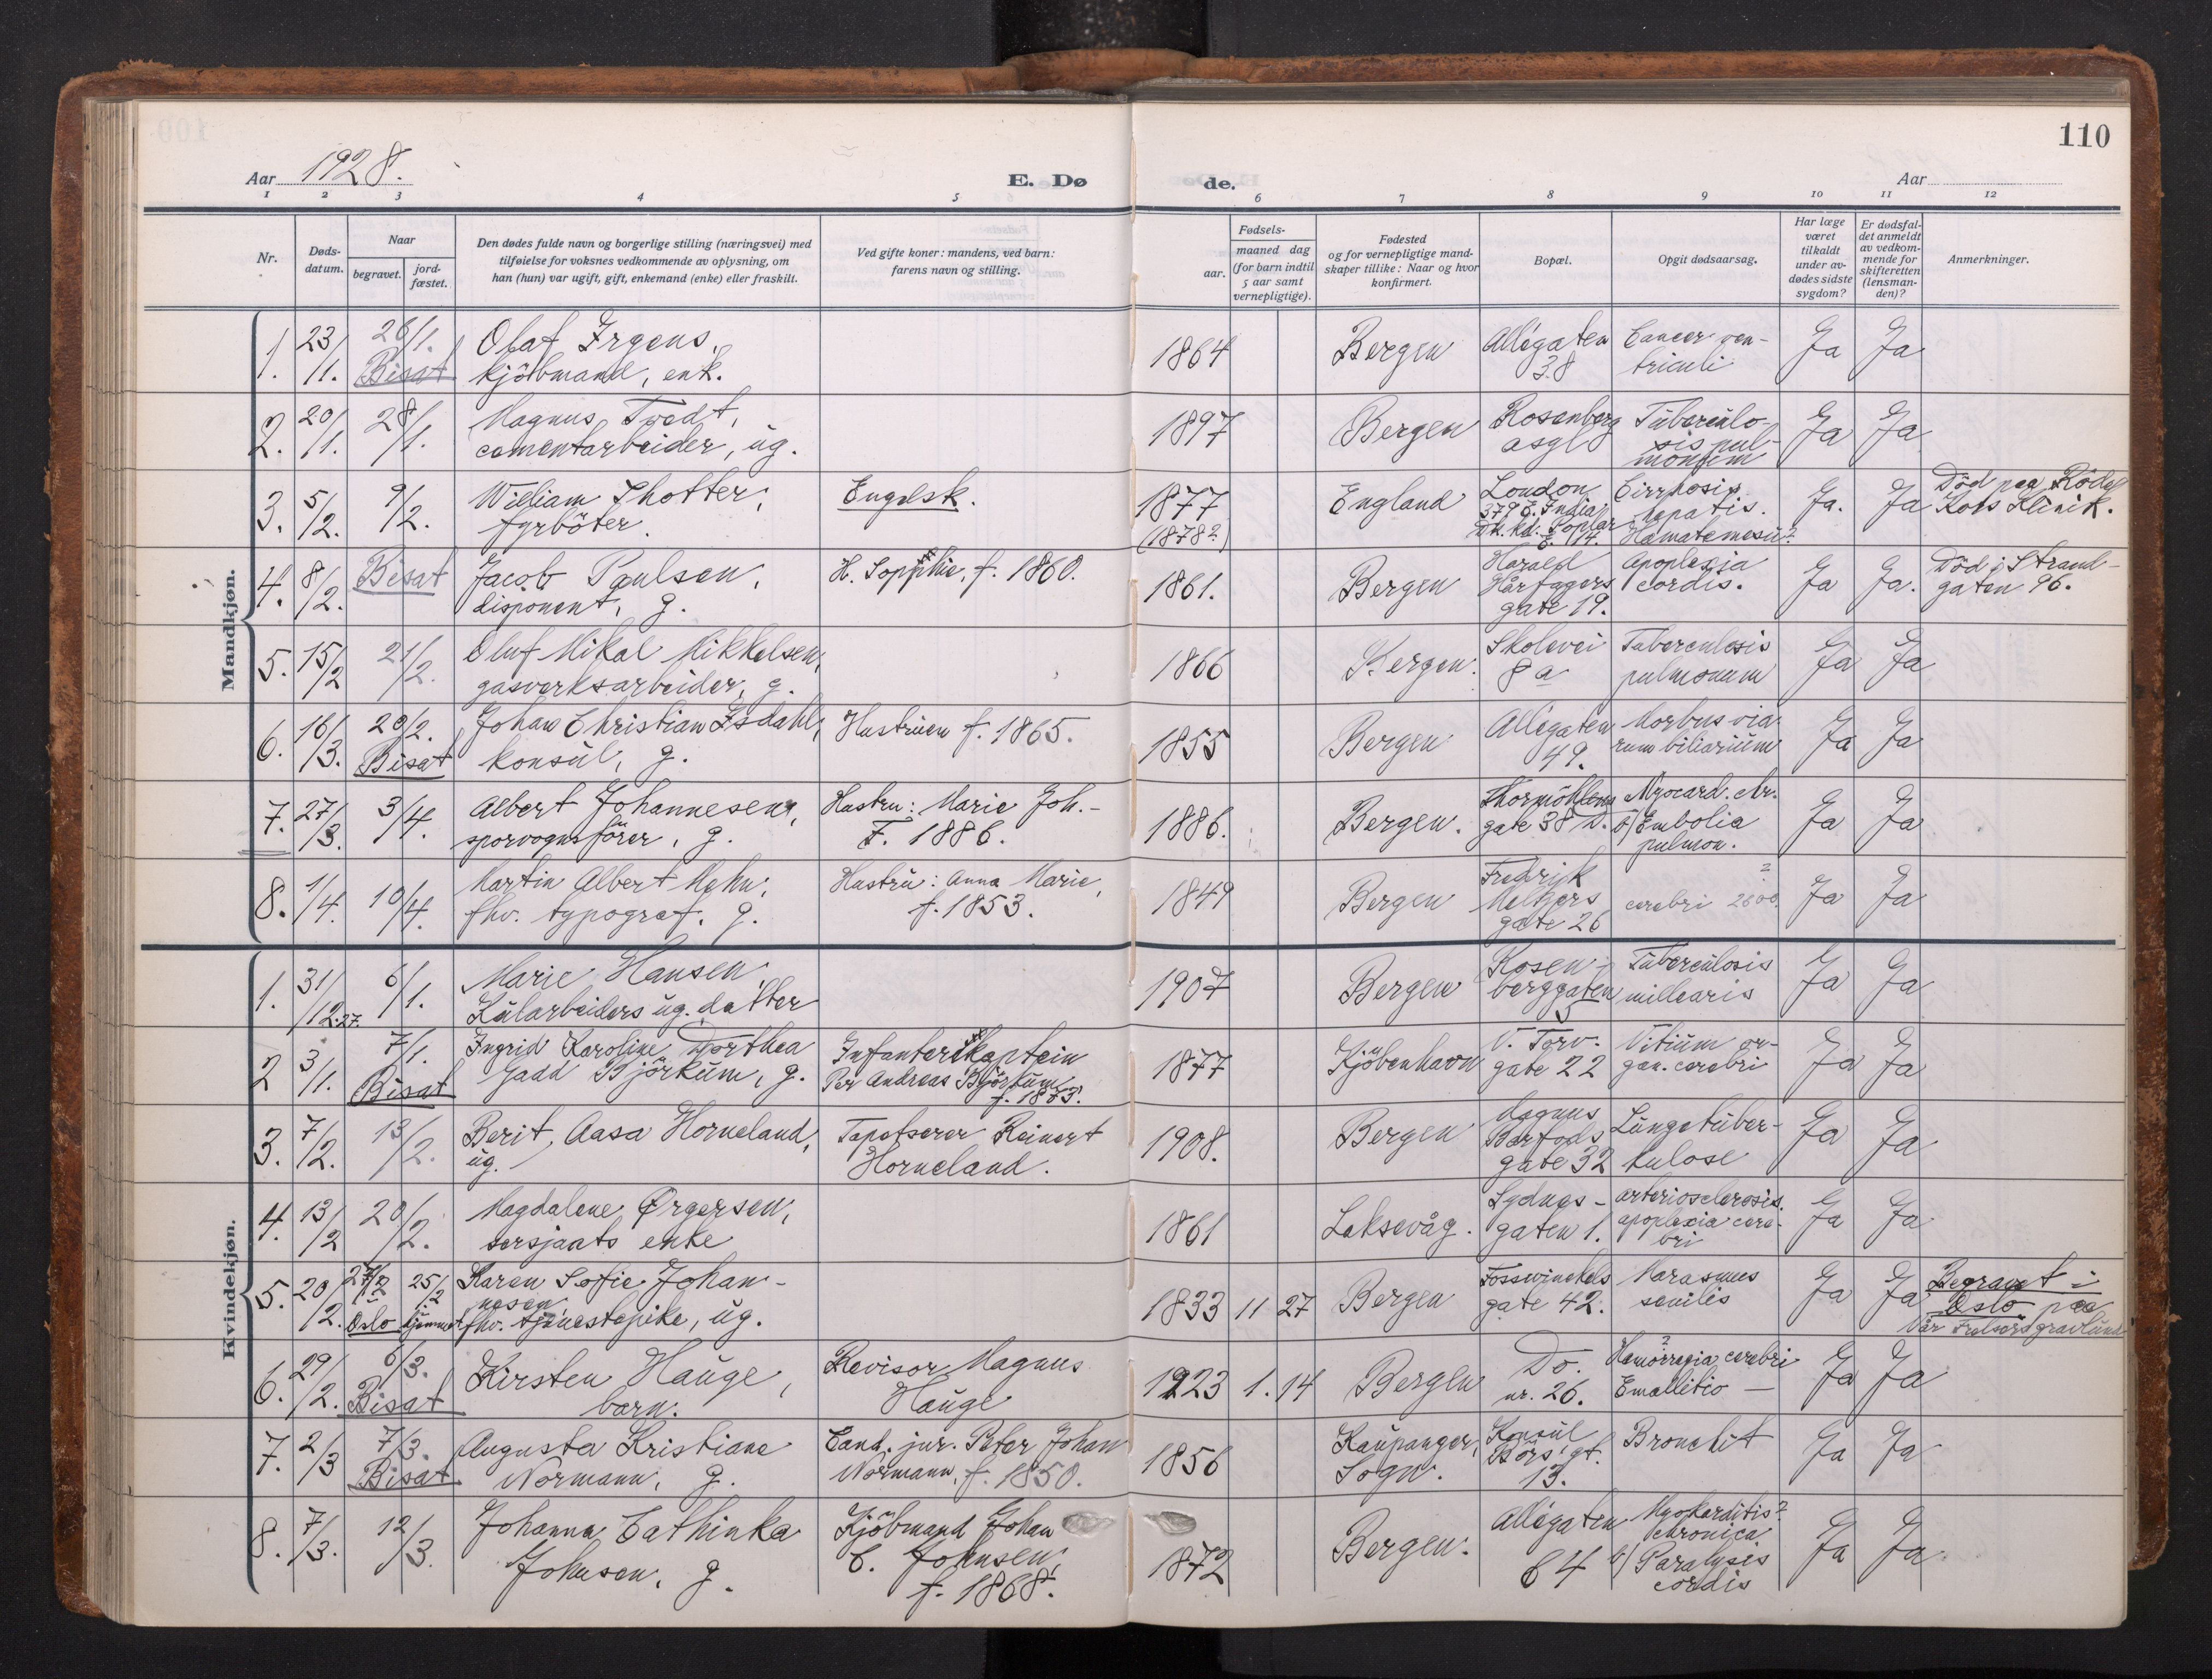 110
Aar 1928.
E. Dø
de.
Aar
1 2 3 4 5 6 7 8 9 10 11 12
Nr.
Døds-
datum.
Naar
begravet.
jord-
fæstet.
Den dødes fulde navn og borgerlige stilling (næringsvei) med
tilføielse for voksnes vedkommende av oplysning, om
han (hun) var ugift, gift, enkemand (enke) eller fraskilt.
Ved gifte koner: mandens, ved barn:
farens navn og stilling.
Fødsels-
aar.
maaned dag
(for barn indtil
5 aar samt
vernepligtige).
Fødested
og for vernepligtige mand-
skaper tillike: Naar og hvor
konfirmert.
Bopæl.
Opgit dødsaarsag.
Har læge
været
tilkaldt
under av-
dødes sidste
sygdom?
Er dødsfal-
det anmeldt
av vedkom-
mende for
skifteretten
(lensman-
den)?
Anmerkninger.
Mandkjøn.
1. 23/11. 26/1. Olaf Irgens, 1864 Bergen Allégaten Cancer ven- Ja Ja
Bisat kjöbmand, enk. 38 triculi
2. 20/1. 28/1. Magnus Tvedt, 1897 Bergen Rosenberg Tüberculo- Ja Ja
cementarbeider, ug. asgl sis pul-
monum
3. 5/2. 9/2. William Shotter, Engelsk. 1877 England London Cirrhosis Ja. Ja Död paa Röde
fyrböter. (1878?) 379 E. India hepatis. Kors Klinik.
Dk. Rd. Poplar Hämatemesis?
E. 14.
4. 8/2. Bisat Jacob Paulsen, H. Sophie, f. 1860. 1861. Bergen Harald Apoplexia Ja Ja. Död i Strand-
disponent, g. Hårfagers cordis. gaten 96.
gate 19.
5. 15/2 21/2. Oluf Mikal Mikkelsen, 1866 Bergen. Skolevei Tuberculosis Ja Ja
gasverksarbeider, g. 8 a pulmonum
6. 16/3. 20/2. Johan Christian Isdahl, Hustruen f. 1865. 1855 Bergen Allégaten Morbus via- Ja Ja
Bisat konsul, g. 49. rum biliarium
7. 27/3. 3/4. Albert Johannesen, Hustru: Marie Joh.- 1886. Bergen. Thormöhlens Myocard. chr. Ja Ja
sporvognsförer, g. F. 1886. gate 38 D. b/ Embolia
pulmon.
8. 1/4. 10/4. Martin Albert Mehn, Hustru: Anna Marie, 1849 Bergen Fredrik ? Ja Ja
fhv. typograf, g. f. 1853. Meltzers cerebri
gate 26
Kvindekjøn.
1. 31/12.27. 6/1. Marie Hansen, 1907 Bergen Rosen- Tüberculosis Ja Ja
Külarbeiders ug. datter berggaten millearis
5
2 3/1. 7/1. Ingrid Karoline Dorthea Infanterikaptein 1877 Kjöbenhavn V. Torv. Vitium or- Ja Ja
Bisat Gadd Björkum, g. Per Andreas Björkum, gate 22 gan. cerebri
f. 1873.
3. 7/2. 13/2. Berit Aasa Horneland, Tapetserer Reinert 1908. Bergen Magnus Lungetuber- Ja Ja
ug. Horneland. Barfods kulose
gate 32
4. 13/2 20/2. Magdalene Ørgersen, 1861 Laksevåg. Sydnes- Arteriosclerosis. Ja Ja
sersjants enke gaten 1. apoplexia cere-
bri
5. 20/2. 27/2 25/2 Karen Sofie Johan- 1833 11 27 Bergen Fosswinckels Marasmus Ja Ja Begravet i
i nesen, gate 42. senilis Oslo paa
Oslo hjemmet fhv. tjenestepike, ug. Vår Frelsers gravlund
6. 29/2. 6/3. Kirsten Hauge, Revisor Magnus 1923 1. 14 Bergen Do. Hämorragia cerebri ? Ja Ja
Bisat barn. Hauge nr. 26. Emollitio —
7. 2/3 7/3. Augusta Kristiane Cand. jur. Peter Johan 1856 Kaupanger, Konsul Bronchit Ja Ja
Bisat Normann, g. Normann, f. 1850. Sogn. Börs' gt.
13.
8. 7/3. 12/3. Johanna Cathinka Kjöbmand Johan 1872 Bergen. Allégaten Myokarditis? Ja Ja
Johnsen, g. C. Johnsen, 64 chronica
f. 1868. b/ Paralysis
cordis